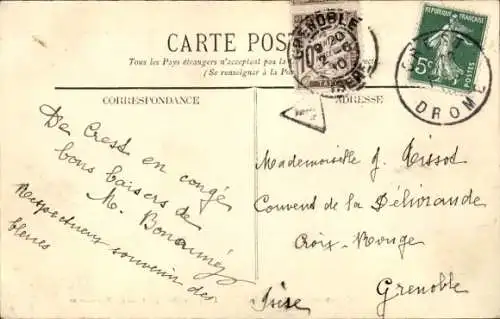 CARTE POS
Tous les Pays étrangers n'acceptent pas la
(Se renseigner à la Po
CORRESPONDANCE
ADRESSE
GRENOBLE
9 20
2 - 6
10
ISERE
10
RÉPUBLIQUE FRANÇAISE
5c
POSTES
CREST
DROME
De Crest en congé
bons baisers de
M. Bonnuméj
Respectueux souvenir des
bleues
Mademoiselle J. Tissot
Couvent de la Délivrande
Croix-Rouge
Grenoble
Isère